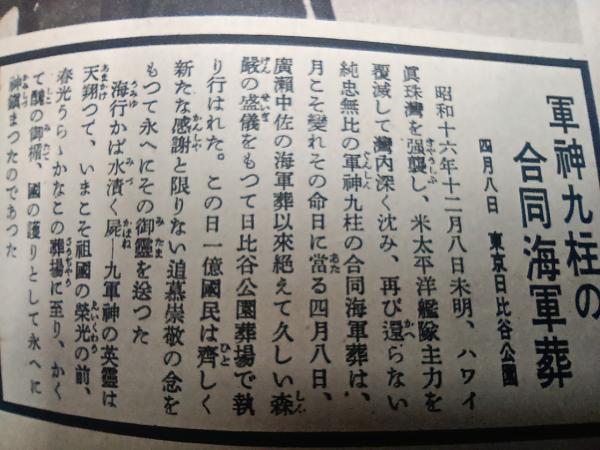 軍神九柱の
合同海軍葬
四月八日　東京日比谷公園
昭和十六年十二月八日未明、ハワイ
眞珠灣を强襲し、米太平洋艦隊主力を
覆滅して灣內深く沈み、再び還らない
純忠無比の軍神九柱の合同海軍葬は、
月こそ變れその命日に當る四月八日、
廣瀨中佐の海軍葬以來絕えて久しい森
嚴の盛儀をもつて日比谷公園葬場で執
り行はれた。この日一億國民は齊しく
新たな感謝と限りない追慕崇敬の念を
もつて永へにその御靈を送つた
海行かば水漬く屍―九軍神の英靈は
天翔つて、いまこそ祖國の榮光の前、
春光うらゝかなこの葬場に至り、かく
て醜の御楯、國の護りとして永へに
神鎭まつたのであつた